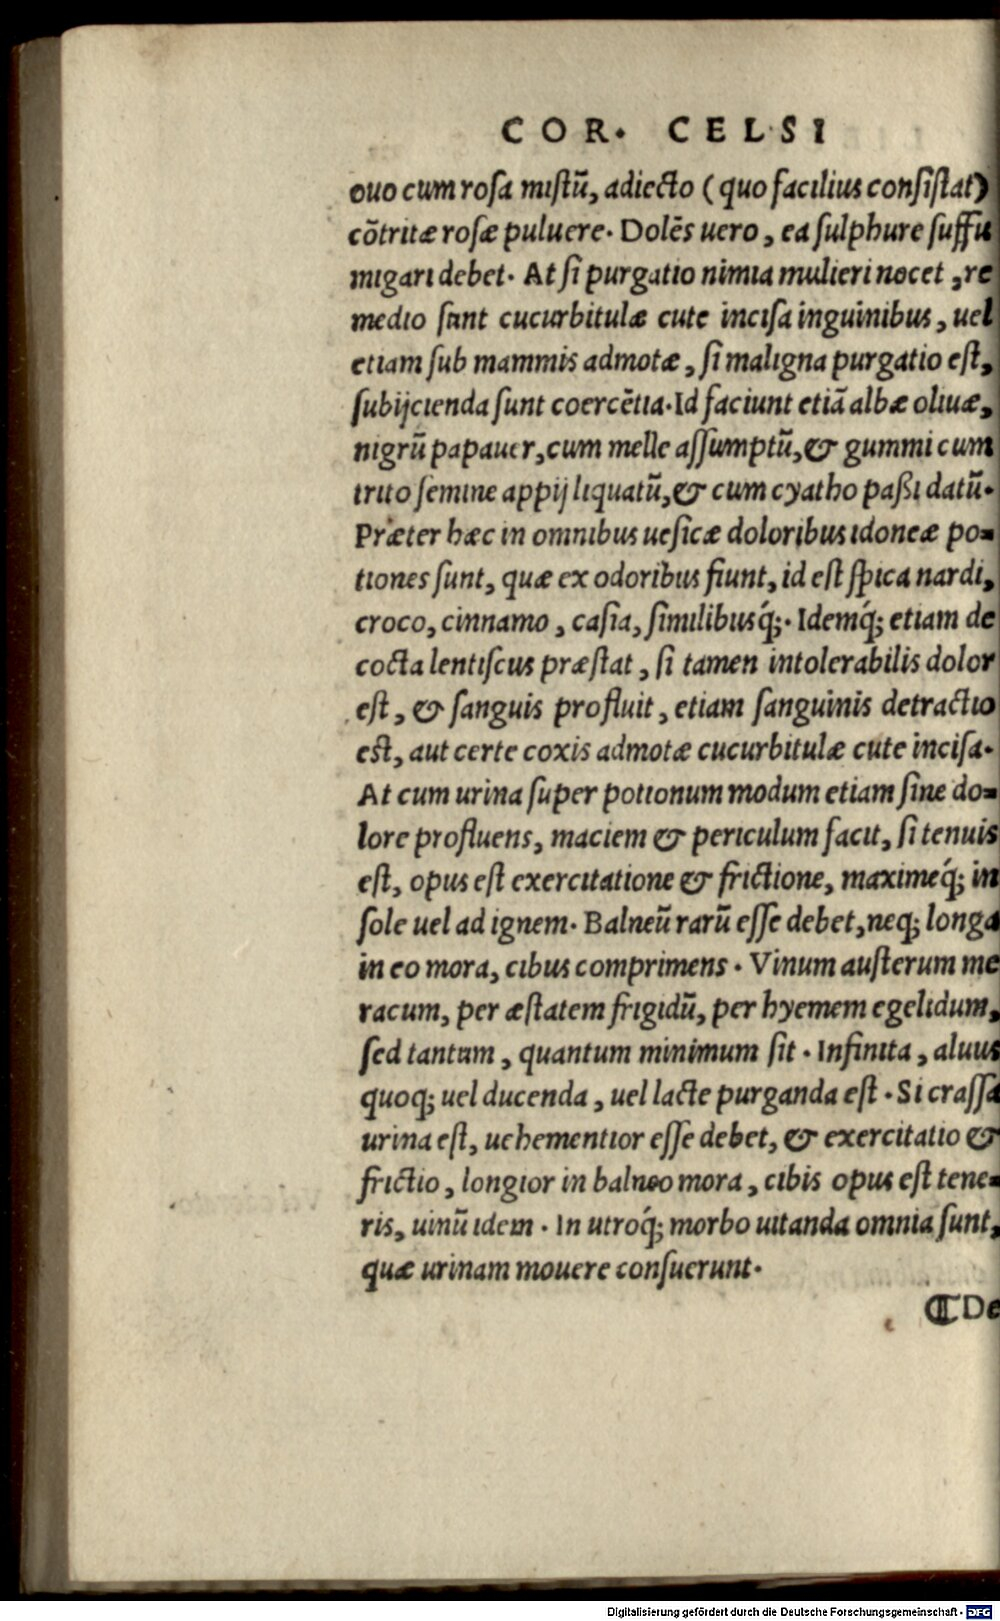 COR. CELSI
ouo cum rosa mistũ, adiecto (quo facilius consistat)
cõtritæ rosæ puluere. Dolẽs uero, ea sulphure suffu
migari debet. At si purgatio nimia mulieri nocet, re
medio sunt cucurbitulæ cute incisa inguinibus, uel
etiam sub mammis admotæ, si maligna purgatio est,
subijcienda sunt coercẽtia. Id faciunt etiã albæ oliuæ,
nigrũ papauer, cum melle assumptũ, & gummi cum
trito semine appij liquatũ, & cum cyatho paßi datũ.
Præter hæc in omnibus uesicæ doloribus idoneæ po=
tiones sunt, quæ ex odoribus fiunt, id est spica nardi,
croco, cinnamo, casia, similibusq́;. Idemq́; etiam de
cocta lentiscus præstat, si tamen intolerabilis dolor
est, & sanguis profluit, etiam sanguinis detractio
est, aut certe coxis admotæ cucurbitulæ cute incisa.
At cum urina super potionum modum etiam sine do=
lore profluens, maciem & periculum facit, si tenuis
est, opus est exercitatione & frictione, maximeq́; in
sole uel ad ignem. Balneũ rarũ esse debet, neq; longa
in eo mora, cibus comprimens. Vinum austerum me
racum, per æstatem frigidũ, per hyemem egelidum,
sed tantum, quantum minimum sit. Infinita, aluus
quoq; uel ducenda, uel lacte purganda est. Si crassa
urina est, uehementior esse debet, & exercitatio &
frictio, longior in balneo mora, cibis opus est tene=
ris, uinũ idem. In utroq́; morbo uitanda omnia sunt,
quæ urinam mouere consuerunt.
⸿De
Digitalisierung gefördert durch die Deutsche Forschungsgemeinschaft - DFG